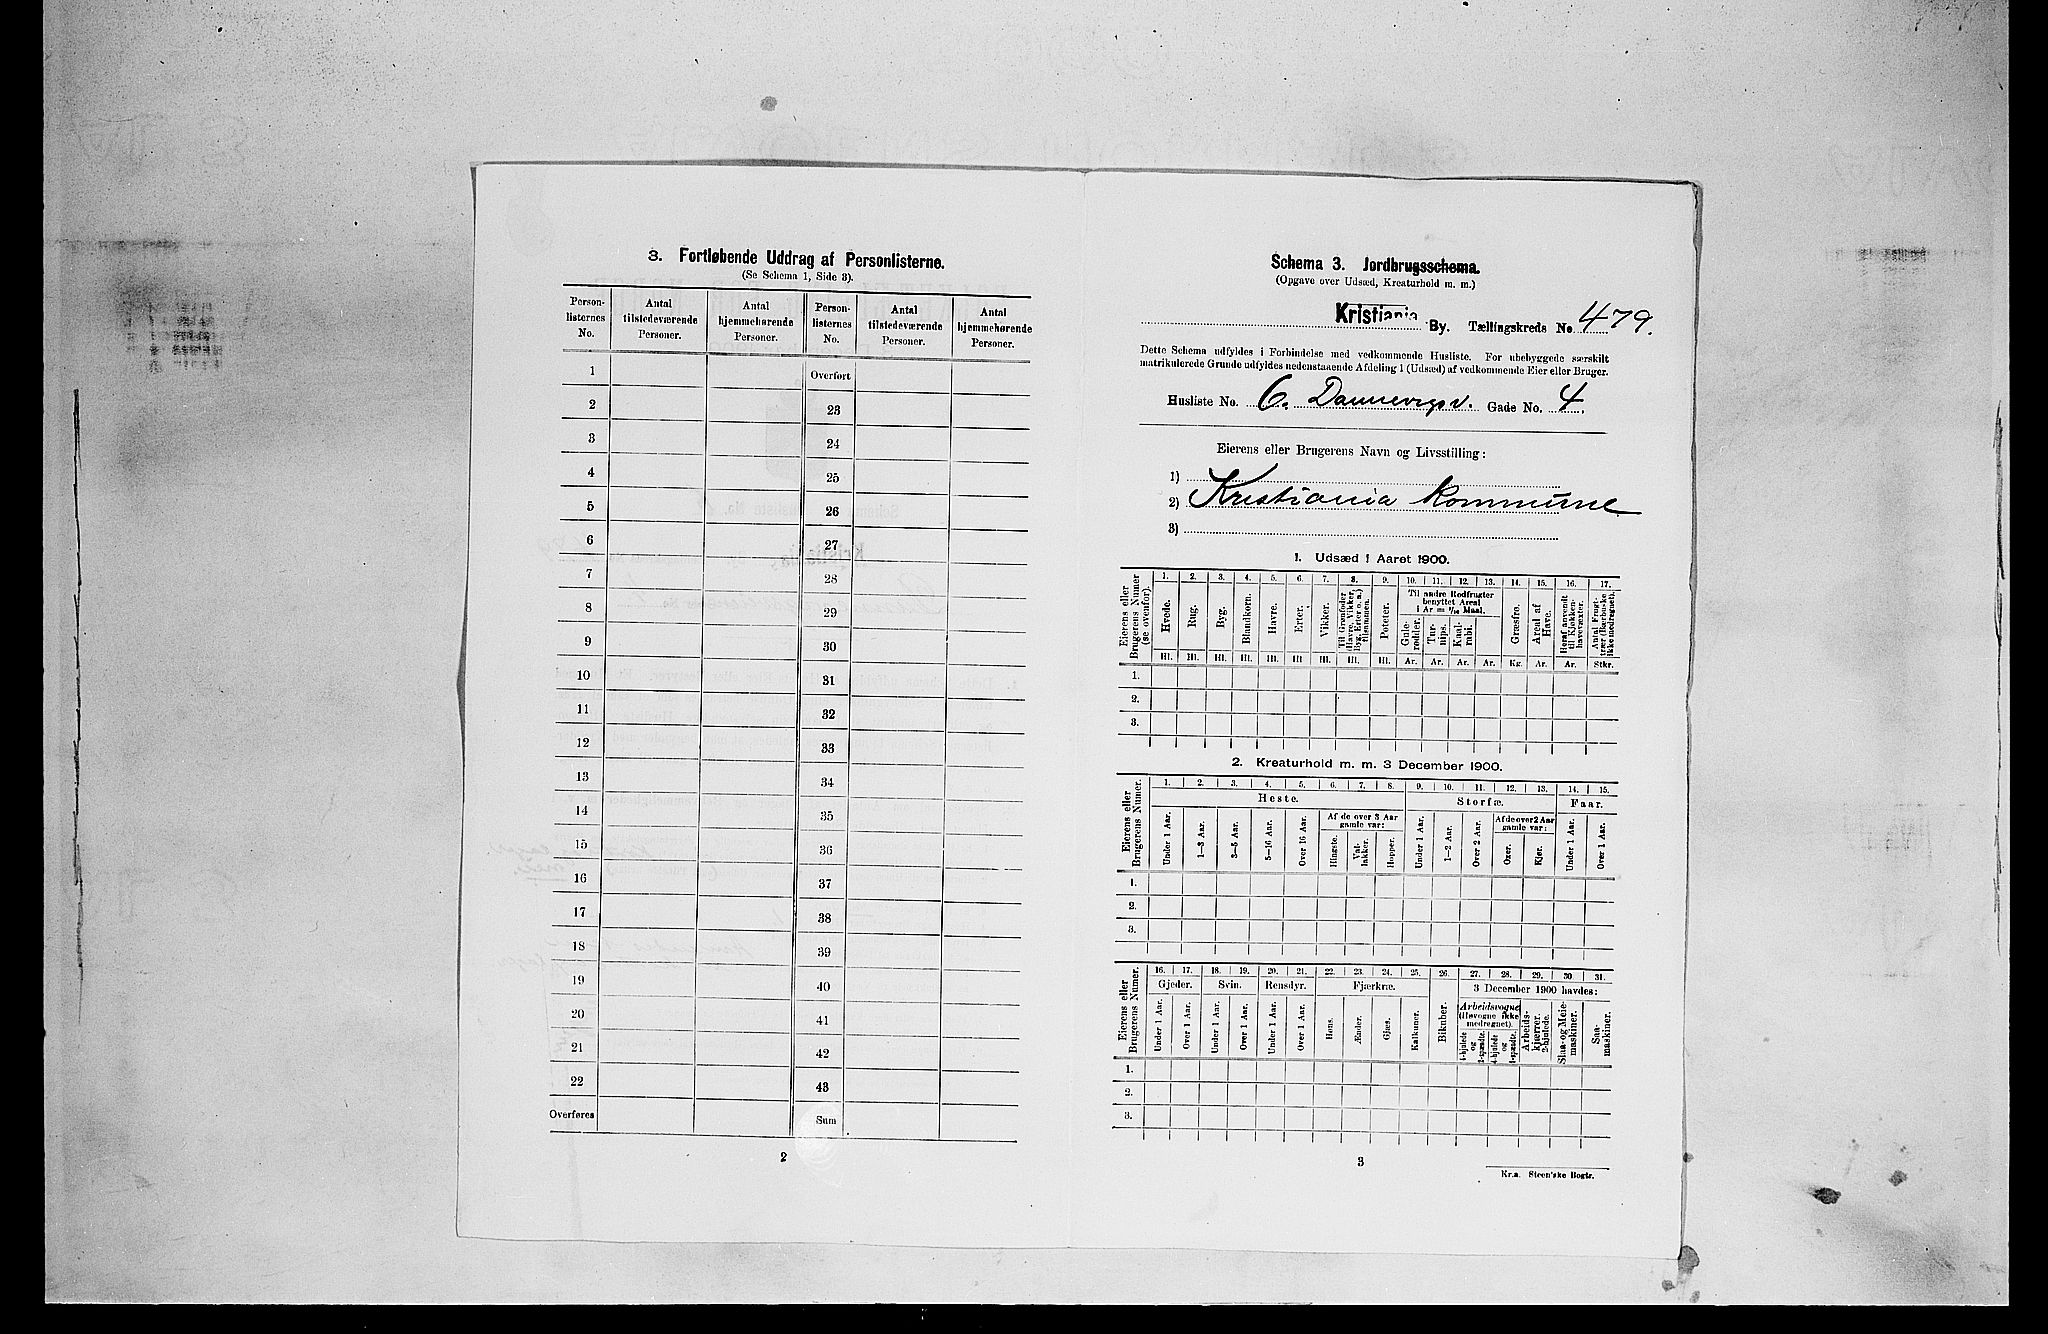 3. Fortløbende Uddrag af Personlisterne.
(Se Schema 1, Side 3).
Person-listernes No. Antal tilstedeværende Personer. Antal hjemmehørende Personer. Person-listernes No. Antal tilstedeværende Personer. Antal hjemmehørende Personer.
1 Overført
2 23
3 24
4 25
5 26
6 27
7 28
8 29
9 30
10 31
11 32
12 33
13 34
14 35
15 36
16 37
17 38
18 39
19 40
20 41
21 42
22 43
Overføres Sum
2
Schema 3. Jordbrugsschema.
(Opgave over Udsæd, Kreaturhold m. m.)
Kristiania By. Tællingskreds No. 479.
Dette Schema udfyldes i Forbindelse med vedkommende Husliste. For ubebyggede særskilt
matrikulerede Grunde udfyldes nedenstaaende Afdeling 1 (Udsæd) af vedkommende Eier eller Bruger.
Husliste No. 6. Dannevigsv. Gade No. 4.
Eierens eller Brugerens Navn og Livsstilling:
1)
2) Kristiania kommune
3)
1. Udsæd i Aaret 1900.
Eierens eller Brugerens Numer (se ovenfor).
1. 2. 3. 4. 5. 6. 7. 8. 9. 10. 11. 12. 13. 14. 15. 16. 17.
Hvede. Rug. Byg. Blandkorn. Havre. Erter. Vikker. Til Grønfoder (Havre, Vikker, Byg, Erter o. a.) tilsammen. Poteter. Til andre Rodfrugter benyttet Areal i Ar = 1/10 Maal. Gule-rødder. Tur-nips. Kaal-rabi. Græsfrø. Areal af Have. Heraf anvendt til Kjøkken-havevæxter. Antal Frugt-trær (Bærbuske ikke medregnet).
Hl. Hl. Hl. Hl. Hl. Hl. Hl. Hl. Hl. Ar. Ar. Ar. Ar. Kg. Ar. Ar. Stkr.
1.
2.
3.
2. Kreaturhold m. m. 3 December 1900.
Eierens eller Brugerens Numer.
1. 2. 3. 4. 5. 6. 7. 8. 9. 10. 11. 12. 13. 14. 15.
Heste. Storfæ. Faar.
Under 1 Aar. 1—3 Aar. 3—5 Aar. 5—16 Aar. Over 16 Aar. Af de over 3 Aar gamle var: Hingste. Val-lakker. Hopper. Under 1 Aar. 1—2 Aar. Over 2 Aar. Af de over 2 Aar gamle var: Oxer. Kjør. Under 1 Aar. Over 1 Aar.
1.
2.
3.
Eierens eller Brugerens Numer.
16. 17. 18. 19. 20. 21. 22. 23. 24. 25. 26. 27. 28. 29. 30 31.
Gjeder. Svin. Rensdyr. Fjærkræ. 3 December 1900 havdes:
Under 1 Aar. Over 1 Aar. Under 1 Aar. Over 1 Aar. Under 1 Aar. Over 1 Aar. Høns. Ænder. Gjæs. Kalkuner. Bikuber. Arbeidsvogne (Høvogne ikke medregnet). 4-hjulede og 2-spændte. 4-hjulede og 1-spændte. Arbeids-kjærrer. 2-hjulede. Slaa- og Meie-maskiner. Saa-maskiner.
1.
2.
3.
3
Kr.a. Steen'ske Bogtr.